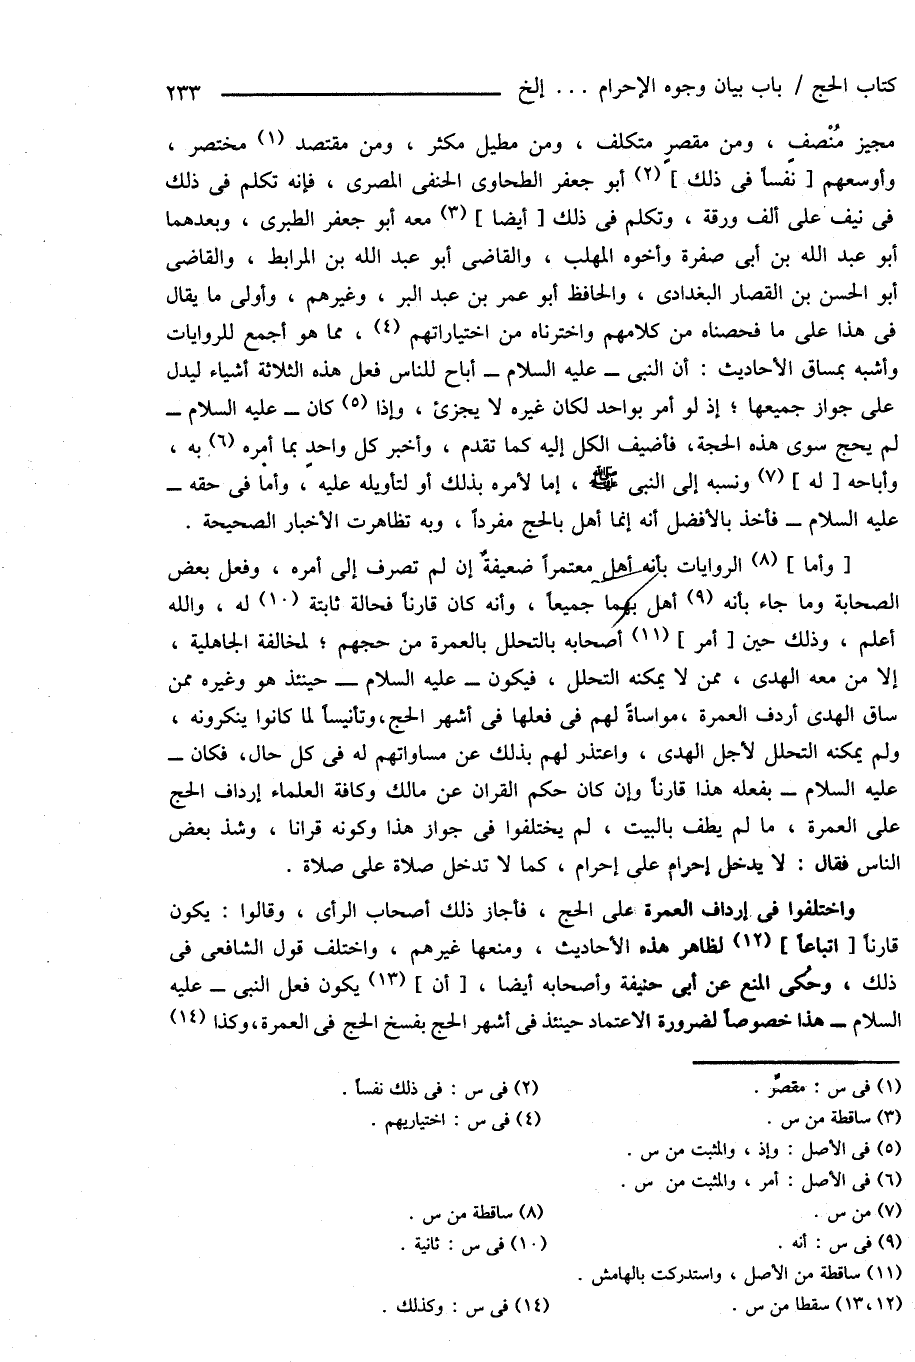 كتاب الحج / باب بيان وجوه الإحرام ... إلخ ــــــــــــــــــــ ٢٣٣
مجيز مُنْصفٍ ، ومن مقصرٍ متكلف ، ومن مطيل مكثر ، ومن مقتصد (١) مختصر ،
وأوسعهم [ نفساً فى ذلك ] (٢) أبو جعفر الطحاوى الحنفى المصرى ، فإنه تكلم فى ذلك
فى نيف على ألف ورقة ، وتكلم فى ذلك [ أيضا ] (٣) معه أبو جعفر الطبرى ، وبعدهما
أبو عبد الله بن أبى صفرة وأخوه المهلب ، والقاضى أبو عبد الله بن المرابط ، والقاضى
أبو الحسن بن القصار البغدادى ، والحافظ أبو عمر بن عبد البر ، وغيرهم ، وأولى ما يقال
فى هذا على ما فحصناه من كلامهم واخترناه من اختياراتهم (٤) ، مما هو أجمع للروايات
وأشبه بمساق الأحاديث : أن النبى ــ عليه السلام ــ أباح للناس فعل هذه الثلاثة أشياء ليدل
على جواز جميعها ؛ إذ لو أمر بواحد لكان غيره لا يجزئ ، وإذا (٥) كان ــ عليه السلام ــ
لم يحج سوى هذه الحجة، فأضيف الكل إليه كما تقدم ، وأخبر كل واحدٍ بما أمِره (٦) به ،
وأباحه [ له ] (٧) ونسبه إلى النبى ﷺ ، إما لأمره بذلك أو لتأويله عليه ، وأما فى حقه ــ
عليه السلام ــ فأخذ بالأفضل أنه إنما أهل بالحج مفرداً ، وبه تظاهرت الأخبار الصحيحة .
[ وأما ] (٨) الروايات بأنه أهل معتمراً ضعيفةٌ إن لم تصرف إلى أمره ، وفعل بعض
الصحابة وما جاء بأنه (٩) أهل بهما جميعاً ، وأنه كان قارناً فحالة ثابتة (١٠) له ، والله
أعلم ، وذلك حين [ أمر ] (١١) أصحابه بالتحلل بالعمرة من حجهم ؛ لمخالفة الجاهلية ،
إلا من معه الهدى ، ممن لا يمكنه التحلل ، فيكون ــ عليه السلام ــ حينئذ هو وغيره ممن
ساق الهدى أردف العمرة ،مواساةً لهم فى فعلها فى أشهر الحج،وتأنيساً لما كانوا ينكرونه ،
ولم يمكنه التحلل لأجل الهدى ، واعتذر لهم بذلك عن مساواتهم له فى كل حال، فكان ــ
عليه السلام ــ بفعله هذا قارناً وإن كان حكم القران عن مالك وكافة العلماء إرداف الحج
على العمرة ، ما لم يطف بالبيت ، لم يختلفوا فى جواز هذا وكونه قرانا ، وشذ بعض
الناس فقال : لا يدخل إحرام على إحرام ، كما لا تدخل صلاة على صلاة .
واختلفوا فى إرداف العمرة على الحج ، فأجاز ذلك أصحاب الرأى ، وقالوا : يكون
قارناً [ اتباعاً ] (١٢) لظاهر هذه الأحاديث ، ومنعها غيرهم ، واختلف قول الشافعى فى
ذلك ، وحُكى المنع عن أبى حنيفة وأصحابه أيضا ، [ أن ] (١٣) يكون فعل النبى ــ عليه
السلام ــ هذا خصوصاً لضرورة الاعتماد حينئذ فى أشهر الحج بفسخ الحج فى العمرة،وكذا (١٤)
(١) فى س : مقصرٌ . (٢) فى س : فى ذلك نفساً .
(٣) ساقطة من س . (٤) فى س : اختياريهم .
(٥) فى الأصل : وإذ ، والمثبت من س .
(٦) فى الأصل : أمر ، والمثبت من س .
(٧) من س . (٨) ساقطة من س .
(٩) فى س : أنه . (١٠) فى س : ثانية .
(١١) ساقطة من الأصل ، واستدركت بالهامش .
(١٢،١٣) سقطا من س . (١٤) فى س : وكذلك .